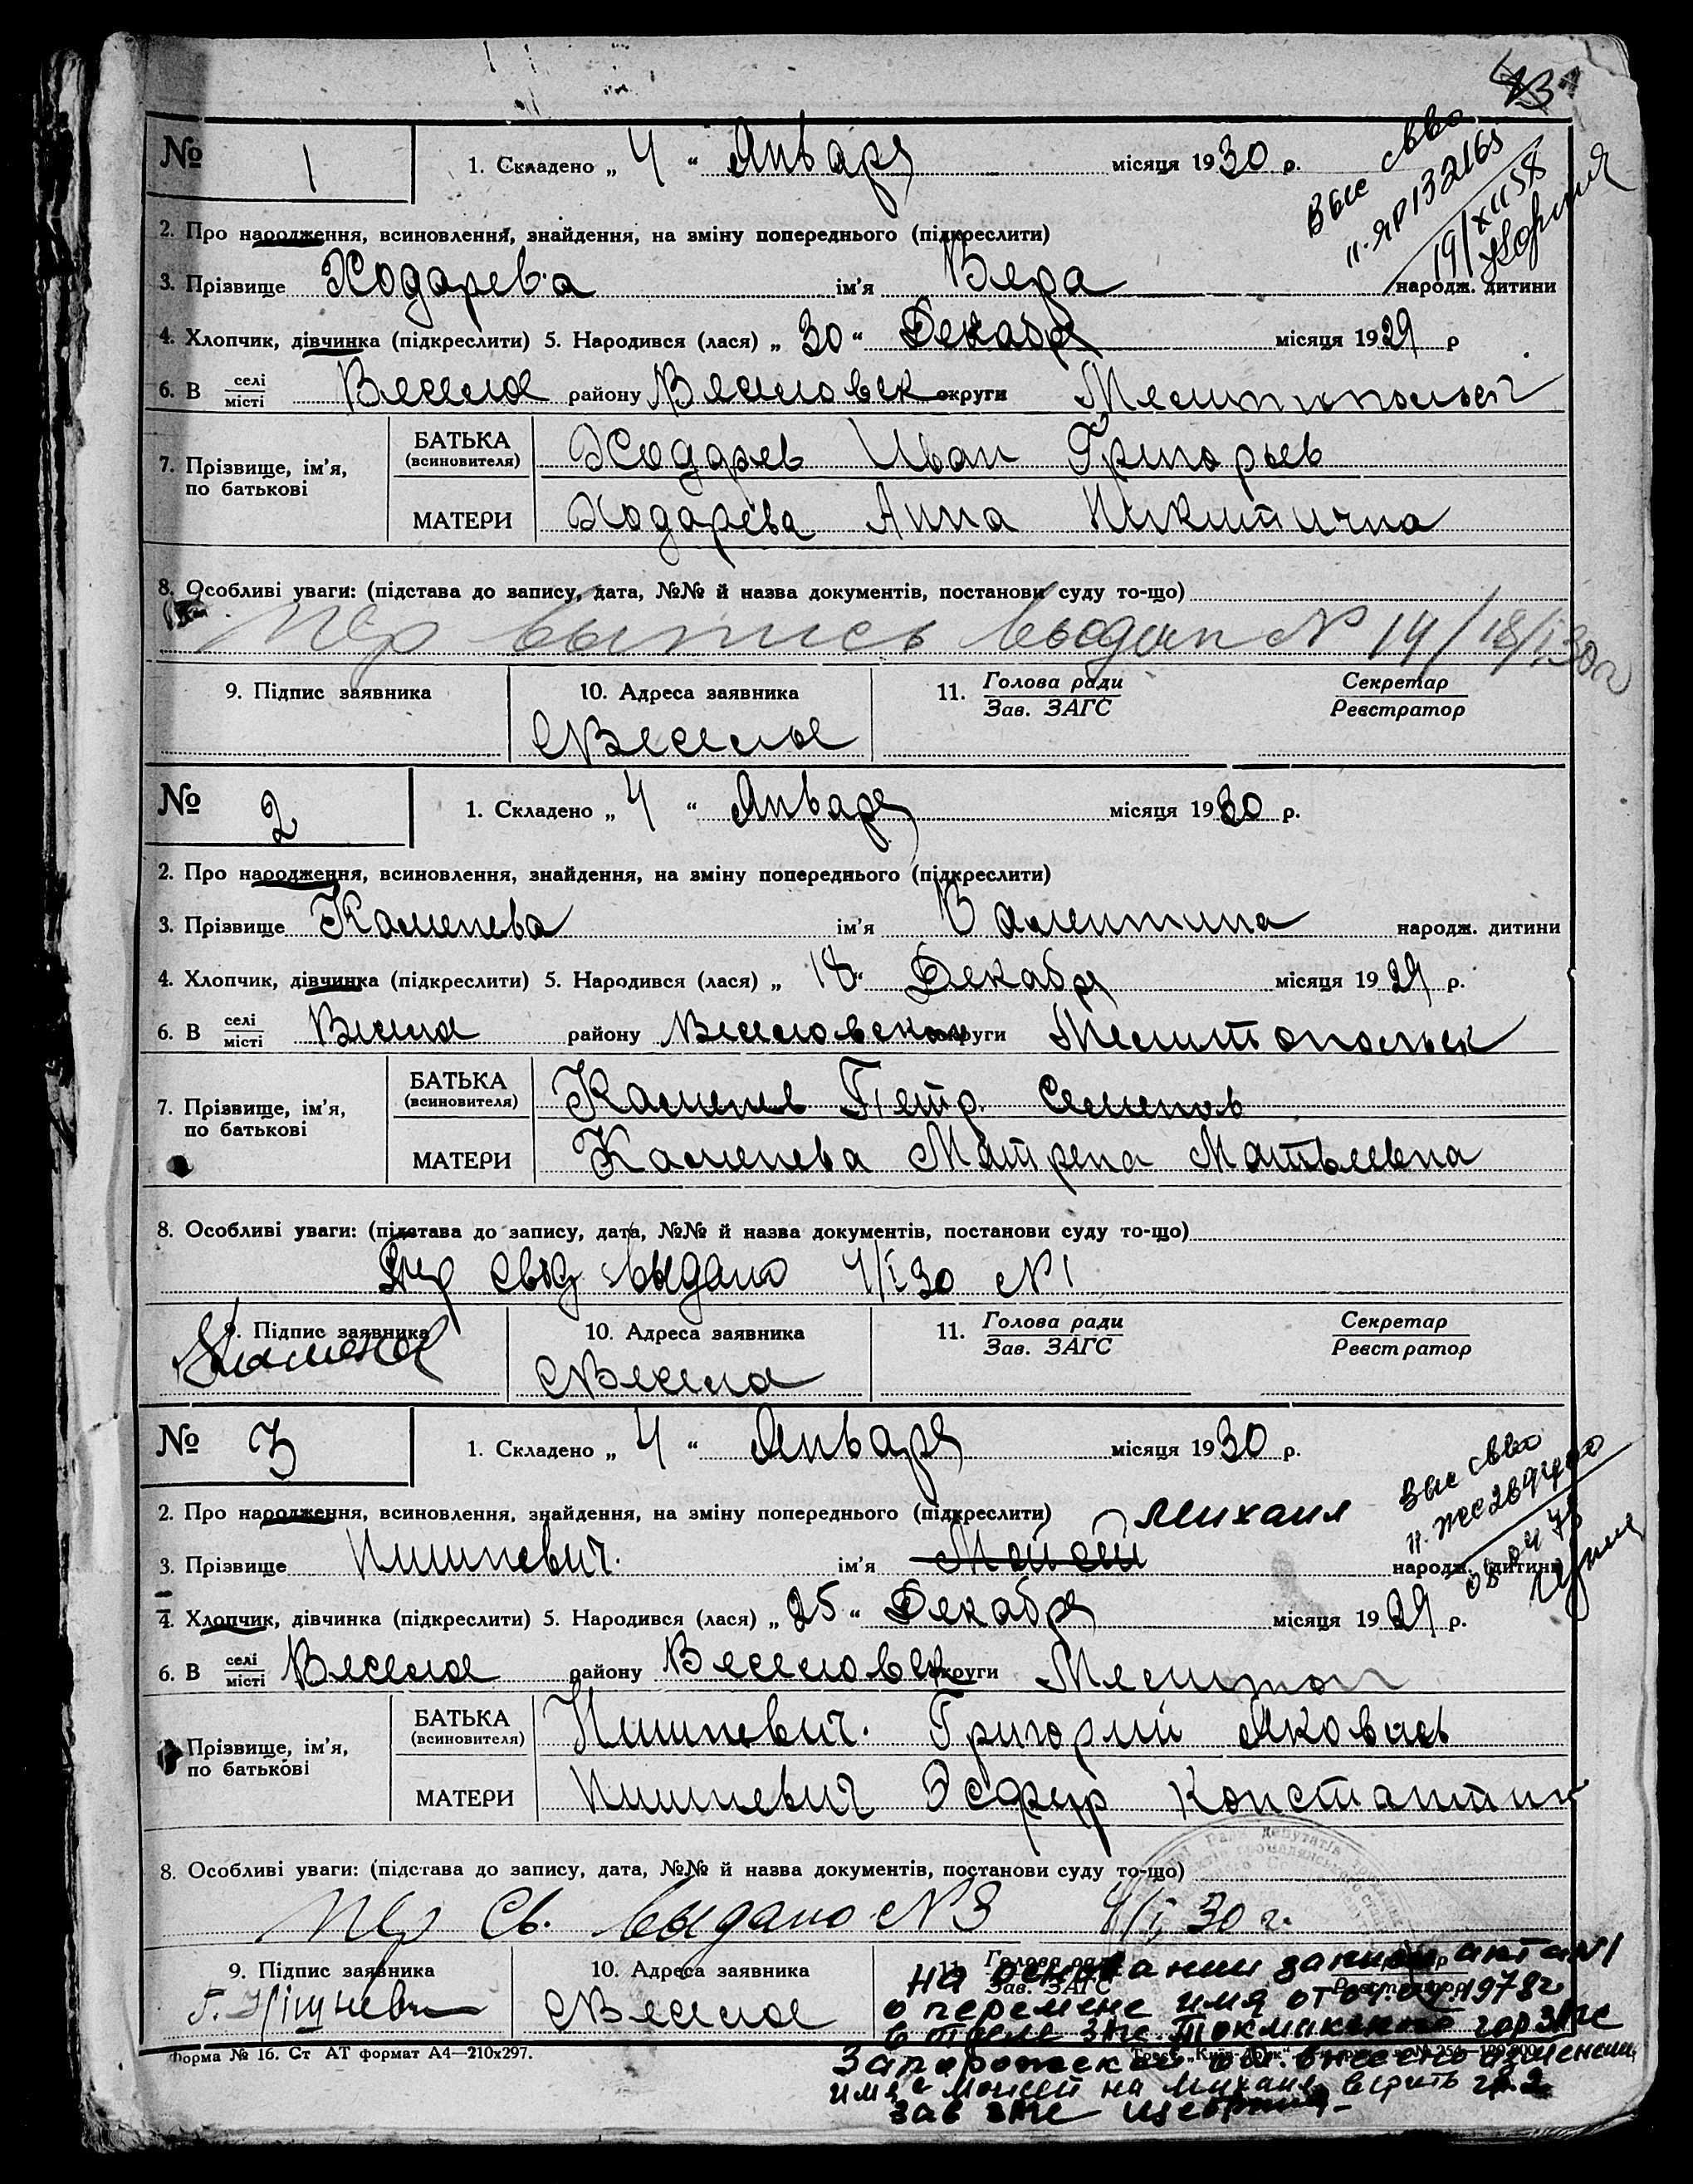 № 1 1. Складено „ 4 “ Января місяця 1930 р.
Выс св-во
II-ЯР 132165
19/XII 58
2. Про народження, всиновлення, знайдення, на зміну попереднього (підкреслити)
3. Прізвище Ходарева ім'я Вера народж. дитини
4. Хлопчик, дівчинка (підкреслити) 5. Народився (лася) „ 30 “ Декабря місяця 1929 р
6. В селі/місті Веселое району Веселовск округи Мелитопольск
7. Прізвище, ім'я, по батькові
БАТЬКА (всиновителя) Ходарев Иван Григорьев
МАТЕРИ Ходарева Анна Никитична
8. Особливі уваги: (підстава до запису, дата, №№ й назва документів, постанови суду то-що)
Пер выпись выдан N 14/18/I 30 г
9. Підпис заявника 10. Адреса заявника 11. Голова ради/Зав. ЗАГС Секретар/Реєстратор
с Веселое
№ 2 1. Складено „ 4 “ Января місяця 1930 р.
2. Про народження, всиновлення, знайдення, на зміну попереднього (підкреслити)
3. Прізвище Каменева ім'я Валентина народж. дитини
4. Хлопчик, дівчинка (підкреслити) 5. Народився (лася) „ 18 “ Декабря місяця 1929 р.
6. В селі/місті Веселое району Веселовск округи Мелитопольск
7. Прізвище, ім'я, по батькові
БАТЬКА (всиновителя) Каменев Петр Семенов
МАТЕРИ Каменева Матрена Матвеевна
8. Особливі уваги: (підстава до запису, дата, №№ й назва документів, постанови суду то-що)
Пер свид выдано 4/I 30 N 1
9. Підпис заявника 10. Адреса заявника 11. Голова ради/Зав. ЗАГС Секретар/Реєстратор
с Веселое
№ 3 1. Складено „ 4 “ Января місяця 1930 р.
Выс св-во
2. Про народження, всиновлення, знайдення, на зміну попереднього (підкреслити) Михаил
3. Прізвище Пишневич ім'я Мойсей народж. дитини
4. Хлопчик, дівчинка (підкреслити) 5. Народився (лася) „ 25 “ Декабря місяця 1929 р.
6. В селі/місті Веселое району Веселовск округи Мелитоп
7. Прізвище, ім'я, по батькові
БАТЬКА (всиновителя) Пишневич Григорий Яковлев
МАТЕРИ Пишневич Эсфир Константин
8. Особливі уваги: (підстава до запису, дата, №№ й назва документів, постанови суду то-що)
Пер Св. выдано N 3 4/I 30 г.
9. Підпис заявника 10. Адреса заявника 11. Голова ради/Зав. ЗАГС
с Веселое
На основании записи акта N1
о перемене имя от 1978 г
в отделе ЗАГС Токмакского горЗАГС
Запорожской обл. внесено изменение
имя с Моисей на Михаил верить гр. 2
Зав ЗАГС
Форма № 16. Ст АТ формат А4—210x297.